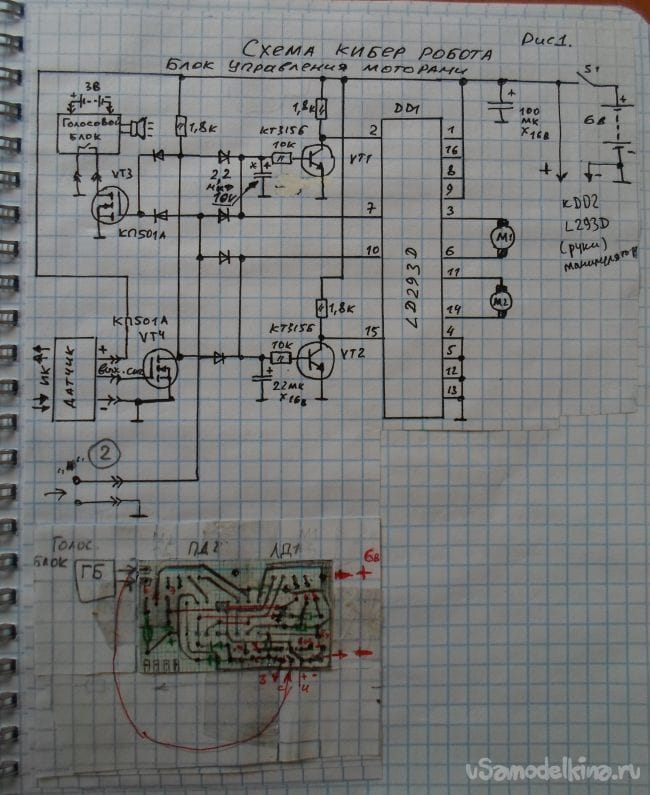 Схема кибер робота
Рис1.
Блок управления моторами
3В
+
-
Голосовой
блок
1,8к
1,8к
КТ315Б
10к
VT1
DD1
2
1
16
8
9
+
100
мк
х16В
S1
+
6В
-
VT3
КП501А
2,2
мкФ
10V
х
+
7
3
М1
6
10
11
М2
14
LD293D
+
-
КDD2
L293D
(руки)
манипулятор
1,8к
КТ315Б
10к
VT2
15
4
5
12
13
КП501А
VT4
ИК
Датчик
+
вых. сиг
-
+
22мк
х16В
2
Голос.
блок
ГБ
ПД2
ЛД1
6В
+
3
+ -
4
uSamodelkina.ru